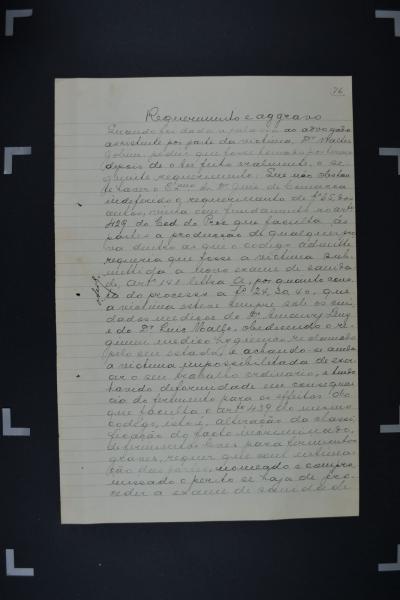 76
Requerimento e aggravo
Quando foi dada a palavra ao advogado
assistente por parte da victima, Dr. Walter
pediu que fosse tomado por termo
depois de o ter feito oralmente, o se
guinte requerimento: Que não obstan
te haver o Exmo. Sr. Dr. Juiz de Comarca
indeferido o requerimento de fs 25 dos
autos, vinha com fundamento no art.
429 do Cod. do Proc. que faculta ás
partes a producção de qualquer pro
va dentro as que o codigo admitte
requeria que fosse a victima sub
mettida a novo exame de sanida
de, Artº 148 letra a, porquanto cons
ta do processo a fs 24, 30, 40, que
a victima esteve sempre sob os cui
dados medicos do Dr.
e do Dr. Luis, obedecendo o re
gimen medico hygienico reclamado
pelo seu estado, e achando-se ainda
a victima impossibilitada de exer
cer o seu trabalho ordinario, e tendo
havido deformidade em consequen
cia do ferimento para os effeitos do
que faculta o artº 439 do mesmo
codigo, isto é, alteração da classi
ficação do facto incriminado,
de ferimentos leves para ferimentos
graves, requer que com intima
ção das partes, nomeado e compro
missado o perito se haja de pro
ceder a exame de sanidade